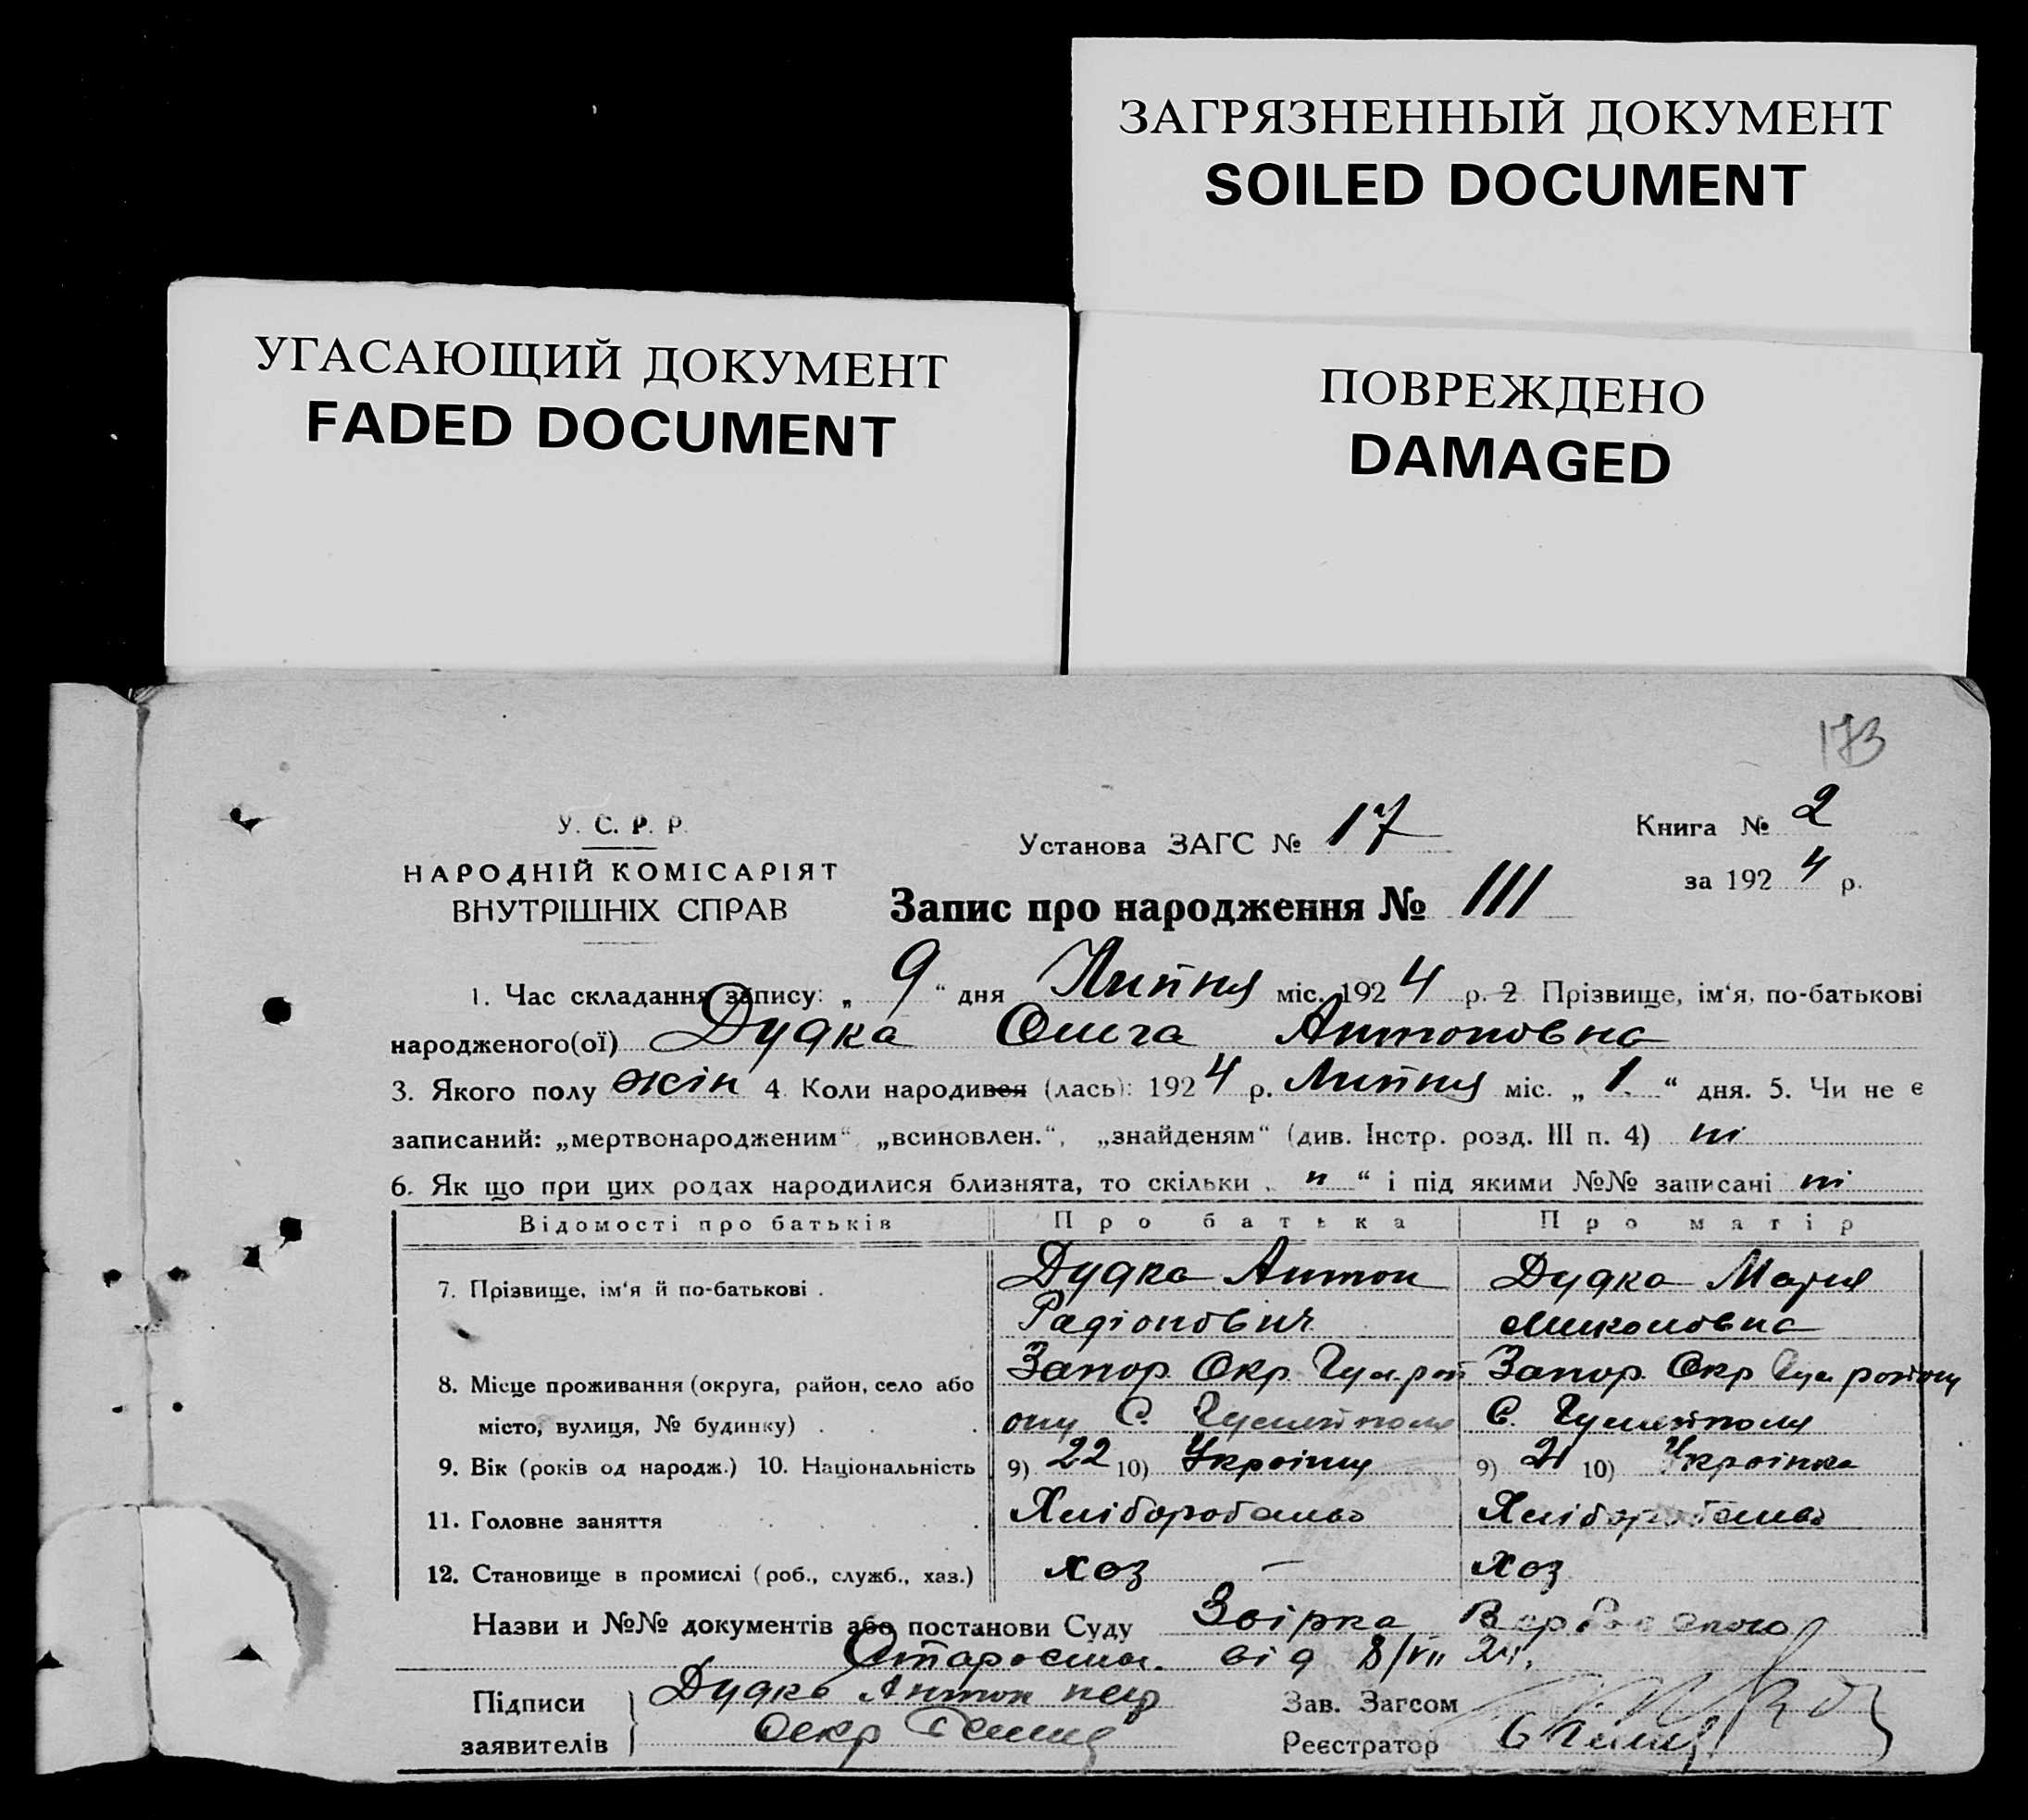 ЗАГРЯЗНЕННЫЙ ДОКУМЕНТ
SOILED DOCUMENT
УГАСАЮЩИЙ ДОКУМЕНТ
FADED DOCUMENT
ПОВРЕЖДЕНО
DAMAGED
173
У. С. Р. Р.
НАРОДНІЙ КОМІСАРІЯТ
ВНУТРІШНІХ СПРАВ
Установа ЗАГС № 17
Книга № 2
за 1924 р.
Запис про народження № 111
1. Час складання запису: „ 9 “ дня Липня міс. 1924 р. 2 Прізвище, ім‘я, по-батькові
народженого(ої) Дудка Ольга Антоновна
3. Якого полу жін 4. Коли народився (лась): 1924 р. Липня міс. „ 1. “ дня. 5. Чи не є
записаний: „мертвонародженим“ „всиновлен.“, „знайденям“ (див. Інстр. розд. III п. 4) ні
6. Як що при цих родах народилися близнята, то скільки „ н “ і під якими №№ записані ні
Відомості про батьків Про батька Про матір
7. Прізвище, ім‘я й по-батькові . Дудка Антон Дудка Мария
Радіонович Миколовна
8. Місце проживання (округа, район, село або Запор. Окр. Гул. рай Запор. Окр Гул району
місто, вулиця, № будинку) . . . ону С. Гуляйполя С. Гуляйполя
9. Вік (років од народж.) 10. Національність 9) 22 10) Україну 9) 21 10) Українка
11. Головне заняття . . . . Хліборобство Хліборобство
12. Становище в промислі (роб., служб., хаз.) хоз — хоз
Назви и №№ документів або постанови Суду Звірка
від 8/VII 24.
Підписи Дудка Антон
заявителів
Зав. Загсом
Реєстратор